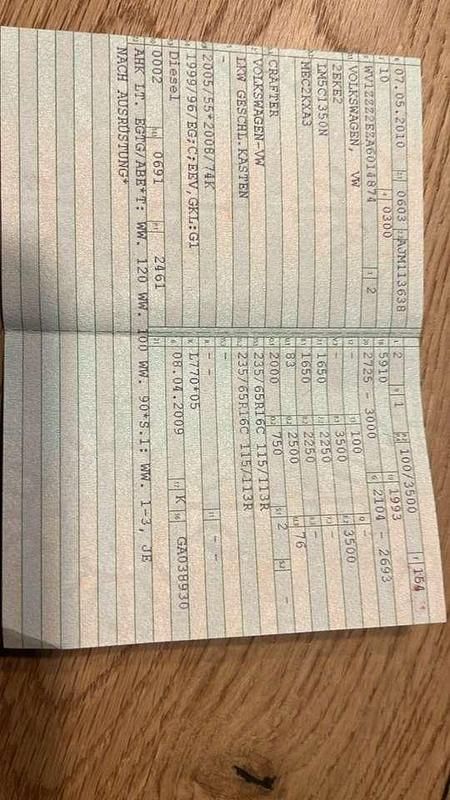 07.05.2010 0603 AJM113638
10 0300
WV1ZZZ2EZA6014874 2
VOLKSWAGEN, VW
2EKE2
LM5C1350N
MEC2KXA3
CRAFTER
VOLKSWAGEN-VW
LKW GESCHL.KASTEN
-
2005/55*2008/74K
1999/96/EG;C;EEV,GKL:G1
Diesel
0002 0691 2461
AHK LT. EGTG/ABE*T: WW. 120 WW. 100 WW. 90*S.1: WW. 1-3, JE
NACH AUSRÜSTUNG*
2 1 100/3500 154
5910 1993
2725 - 3000 2104 - 2693
- 100 -
- 3500 3500
1650 2250 -
1650 2250 -
83 2500 76
2000 750 2 -
235/65R16C 115/113R
235/65R16C 115/113R
- -
- - - -
L770*05
08.04.2009 K GA038930